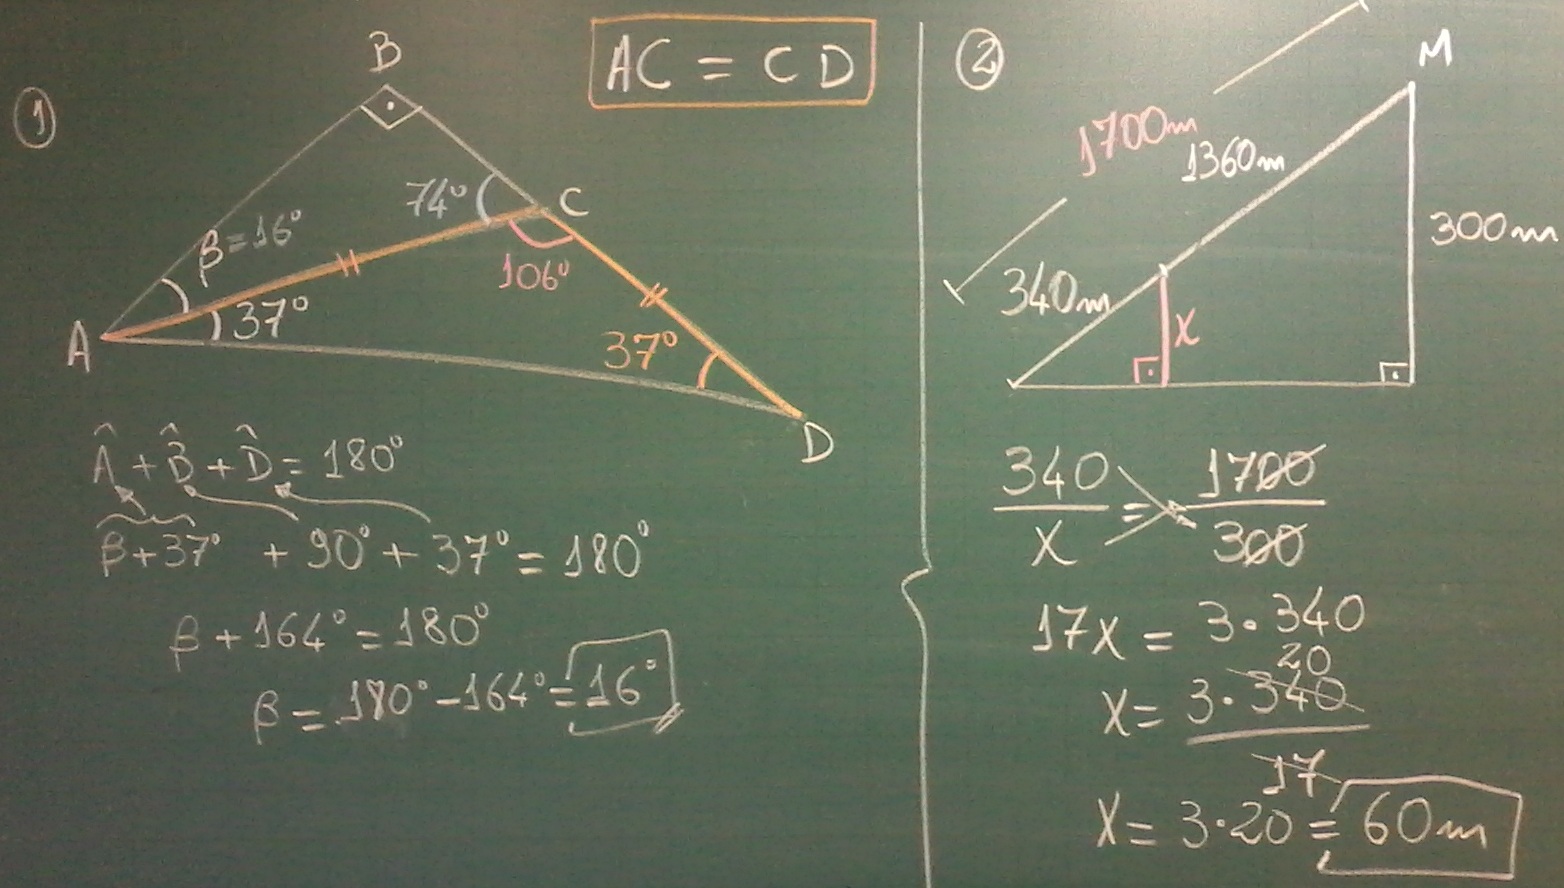 1
AC = CD
B
74°
C
β=16°
106°
37°
A
37°
D
Â + B̂ + D̂ = 180°
β+37° + 90° + 37° = 180°
β + 164° = 180°
β = 180° - 164° = 16°
2
M
1700m
1360m
300m
340m
x
340/x = 1700/300
17x = 3·340
20
x = 3·340/17
x = 3·20 = 60m